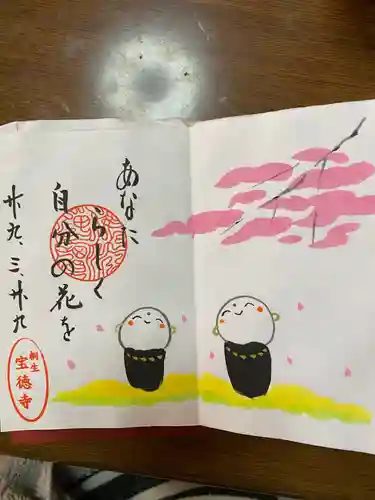 あなたに
らしく
自分の花を
廾九、三、廾九
桐生
宝徳寺